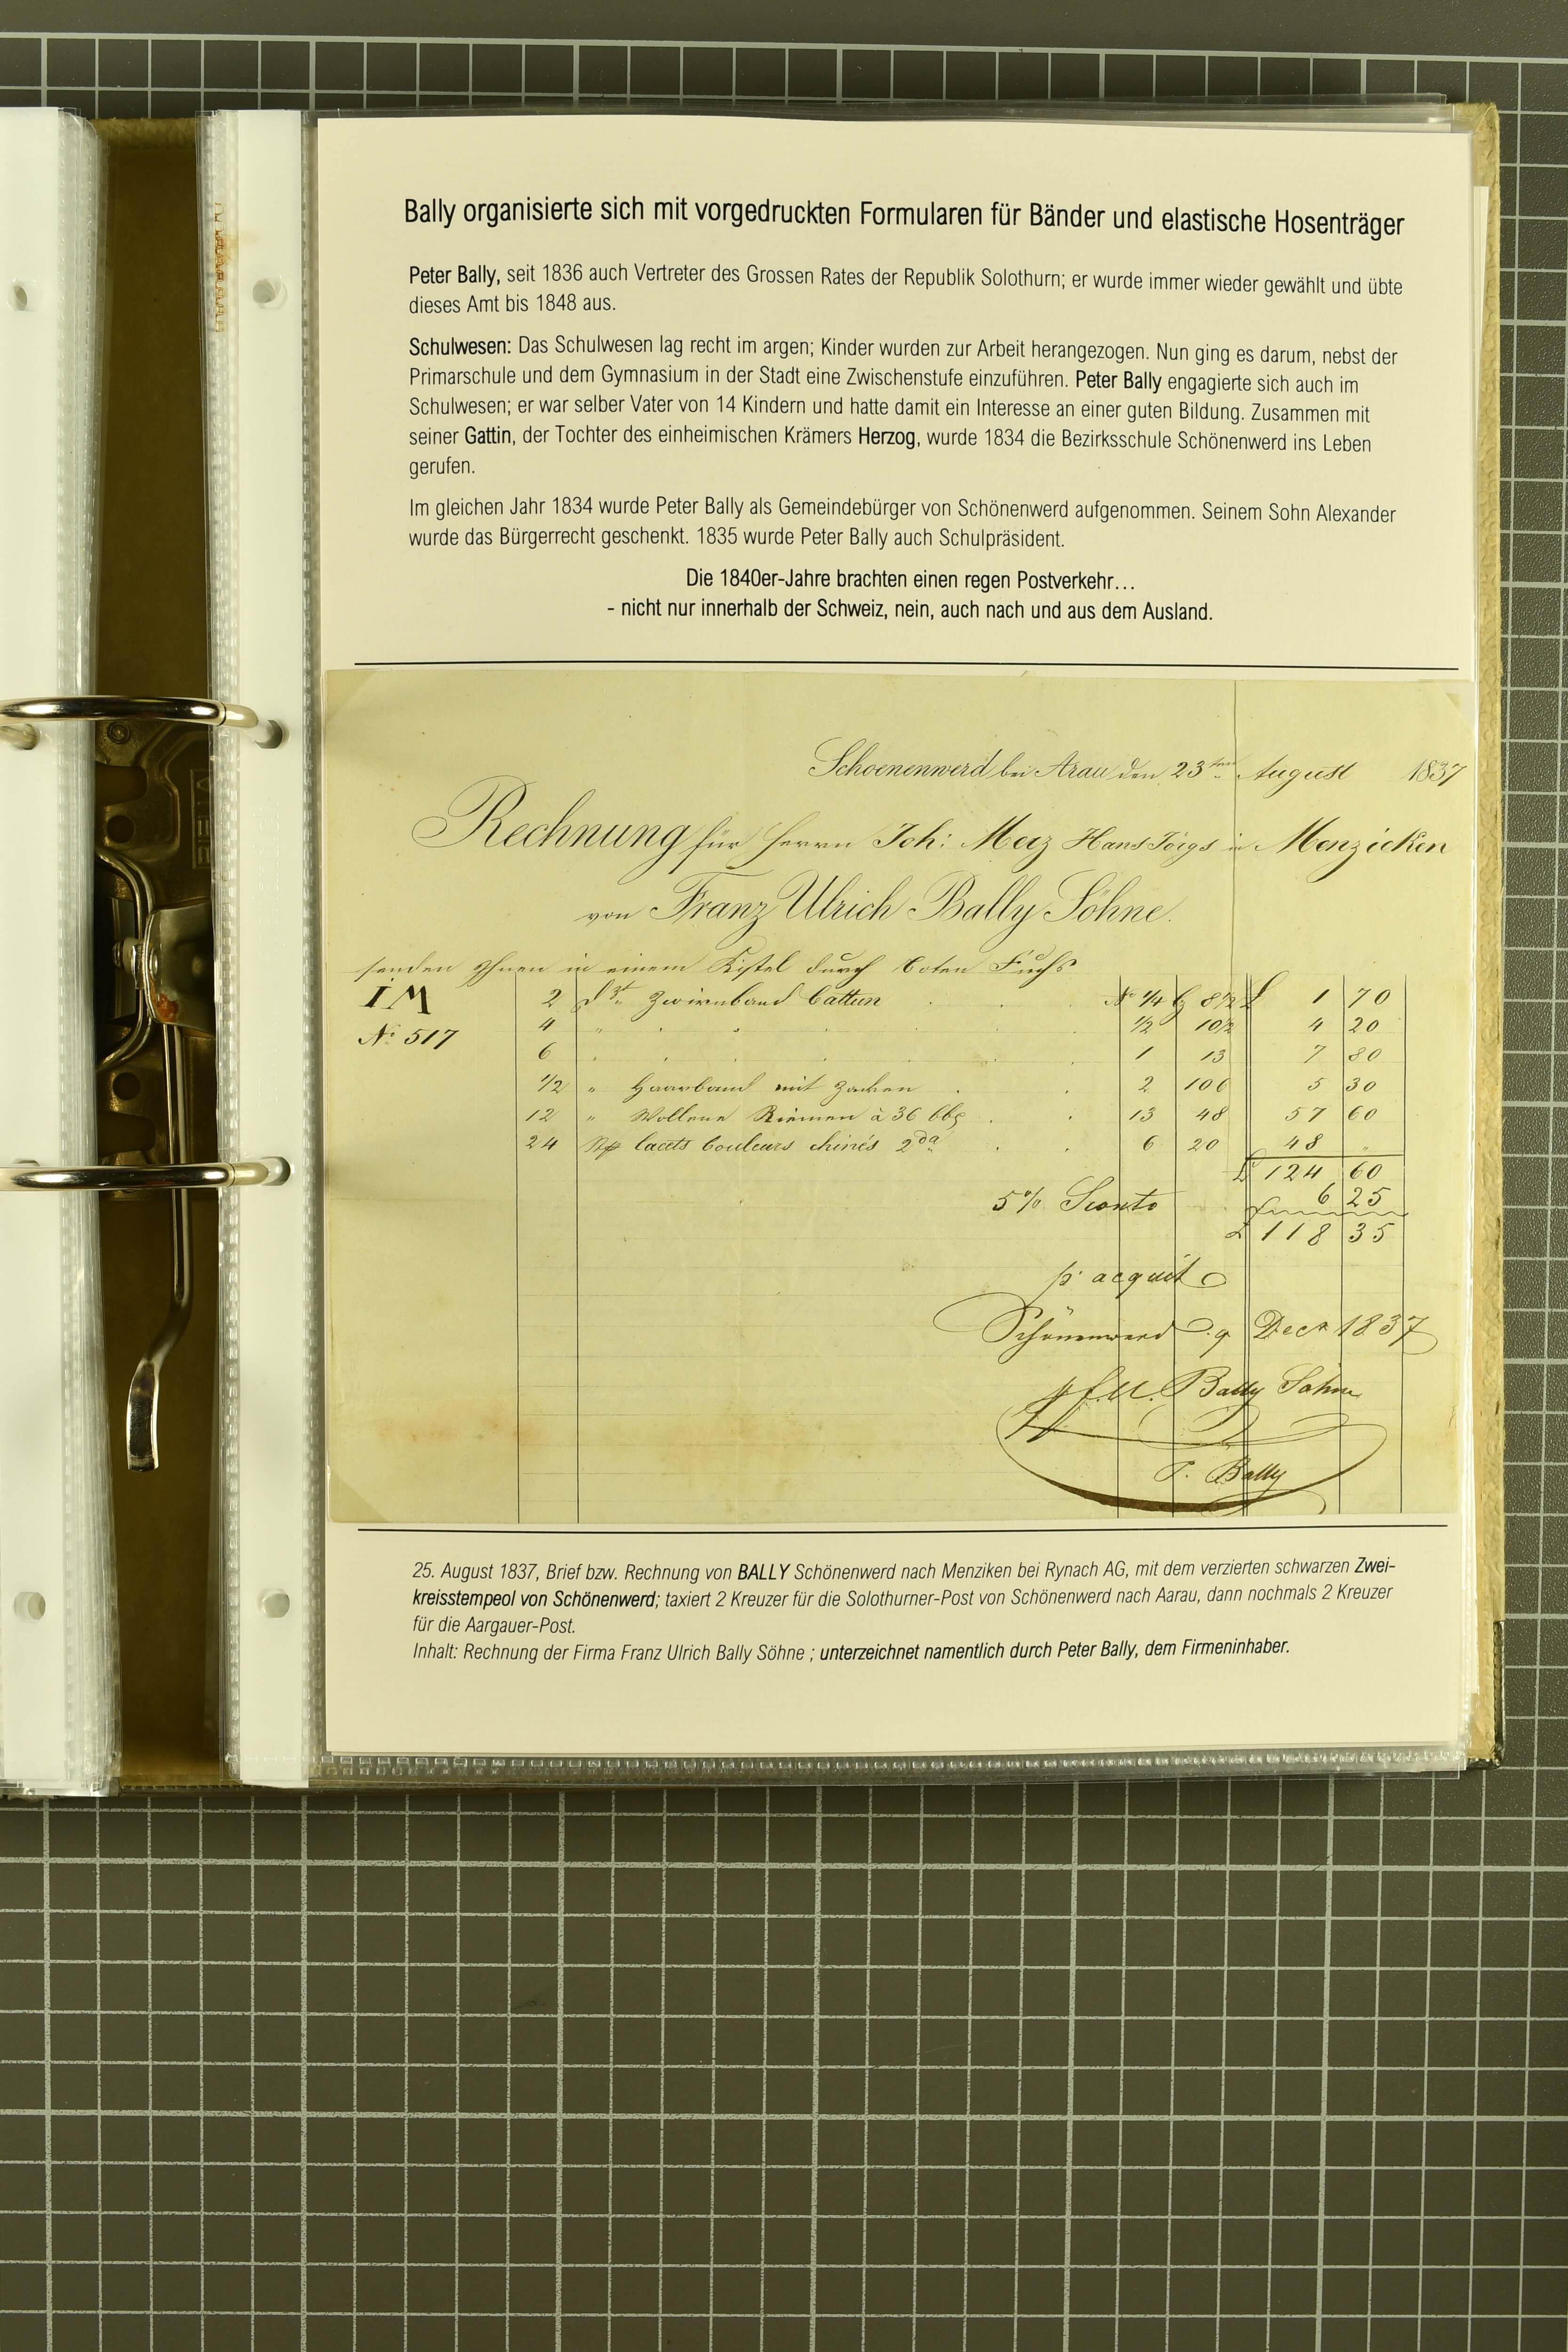 Bally organisierte sich mit vorgedruckten Formularen für Bänder und elastische Hosenträger
Peter Bally, seit 1836 auch Vertreter des Grossen Rates der Republik Solothurn; er wurde immer wieder gewählt und übte
dieses Amt bis 1848 aus.
Schulwesen: Das Schulwesen lag recht im argen; Kinder wurden zur Arbeit herangezogen. Nun ging es darum, nebst der
Primarschule und dem Gymnasium in der Stadt eine Zwischenstufe einzuführen. Peter Bally engagierte sich auch im
Schulwesen; er war selber Vater von 14 Kindern und hatte damit ein Interesse an einer guten Bildung. Zusammen mit
seiner Gattin, der Tochter des einheimischen Krämers Herzog, wurde 1834 die Bezirksschule Schönenwerd ins Leben
gerufen.
Im gleichen Jahr 1834 wurde Peter Bally als Gemeindebürger von Schönenwerd aufgenommen. Seinem Sohn Alexander
wurde das Bürgerrecht geschenkt. 1835 wurde Peter Bally auch Schulpräsident.
Die 1840er-Jahre brachten einen regen Postverkehr…
- nicht nur innerhalb der Schweiz, nein, auch nach und aus dem Ausland.
Schoenenwerd bei Arau den 23ten August 1837
Rechnung für Herrn Joh: Merz Hans Jörgs in Menzicken
von Franz Ulrich Bally Söhne.
senden Ihnen in einem Kistel durch Boten Fuchs
IM 2 Zwirnband Cattun No 1/4 bz 8 1/2 £ 1 70
No 517 4 " 1/2 10 1/2 4 20
6 1 13 7 80
1/2 " Haarband mit Zacken 2 106 5 30
12 " Wollene Riemen à 36 13 48 57 60
24 lacets Couleurs chinés 2da 6 20 48 "
£ 124 60
5% Sconto 6 25
£ 118 35
p. acquit
Schönenwerd 9 Decr 1837
p f. U. Bally Söhne
P. Bally
25. August 1837, Brief bzw. Rechnung von BALLY Schönenwerd nach Menziken bei Rynach AG, mit dem verzierten schwarzen Zwei-
kreisstempeol von Schönenwerd; taxiert 2 Kreuzer für die Solothurner-Post von Schönenwerd nach Aarau, dann nochmals 2 Kreuzer
für die Aargauer-Post.
Inhalt: Rechnung der Firma Franz Ulrich Bally Söhne ; unterzeichnet namentlich durch Peter Bally, dem Firmeninhaber.